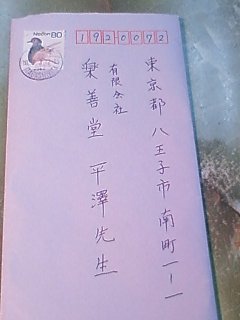 NIPPON 80
1920072
東京都八王子市南町一ー一
有限会社
楽善堂 平澤先生